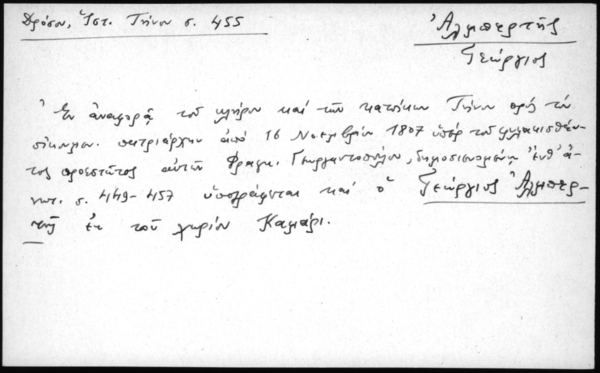 Δρόσου, Ἱστ. Τήνου σ. 455
Ἀλμπερτῆς
Γεώργιος
Ἐν ἀναφορᾷ τοῦ κλήρου καὶ τῶν κατοίκων Τήνου πρὸς τὸν
οἰκουμ. πατριάρχην ἀπὸ 16 Νοεμβρίου 1807 ὑπὲρ τοῦ φυλακισθέν-
τος προεστῶτος αὐτῶν Φραγκ. Γεωργαντοπούλου, δημοσιευομένῃ ἔνθ' ἀ-
νωτ. σ. 449-457 ὑπογράφεται καὶ ὁ Γεώργιος Ἀλμπερ-
τῆς ἐκ τοῦ χωρίου Καμάρι.